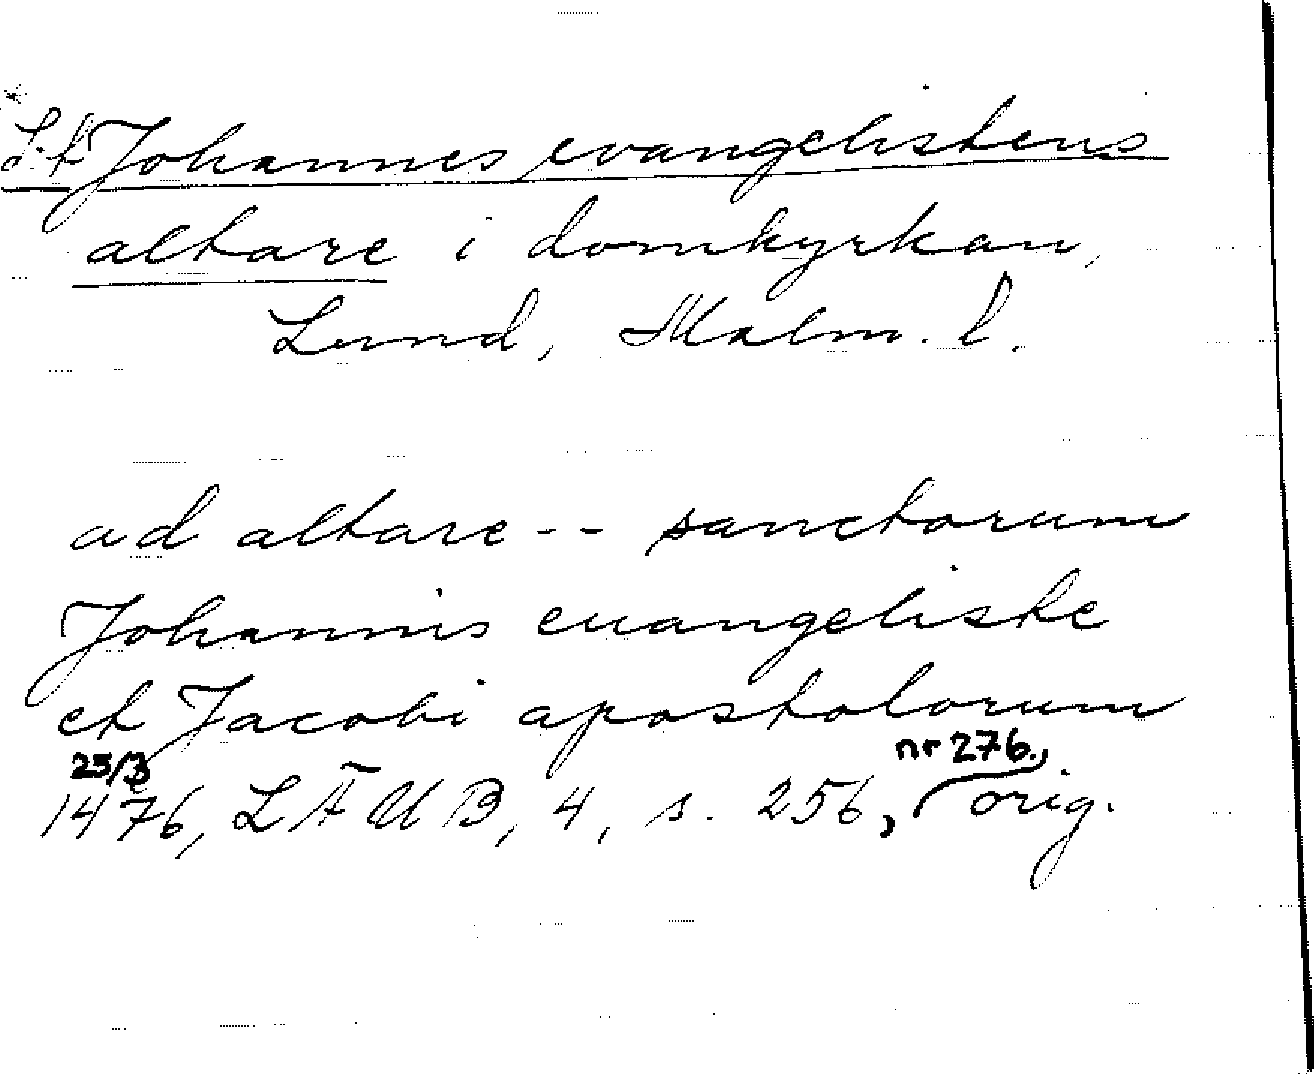 S:t Johannes evangelistens
altare i domkyrkan,
Lund, Malm. l.
ad altare -- sanctorum
Johannis euangeliste
et Jacobi apostolorum
23/3 nr 276.,
1476, LÄUB, 4, s. 256, orig.